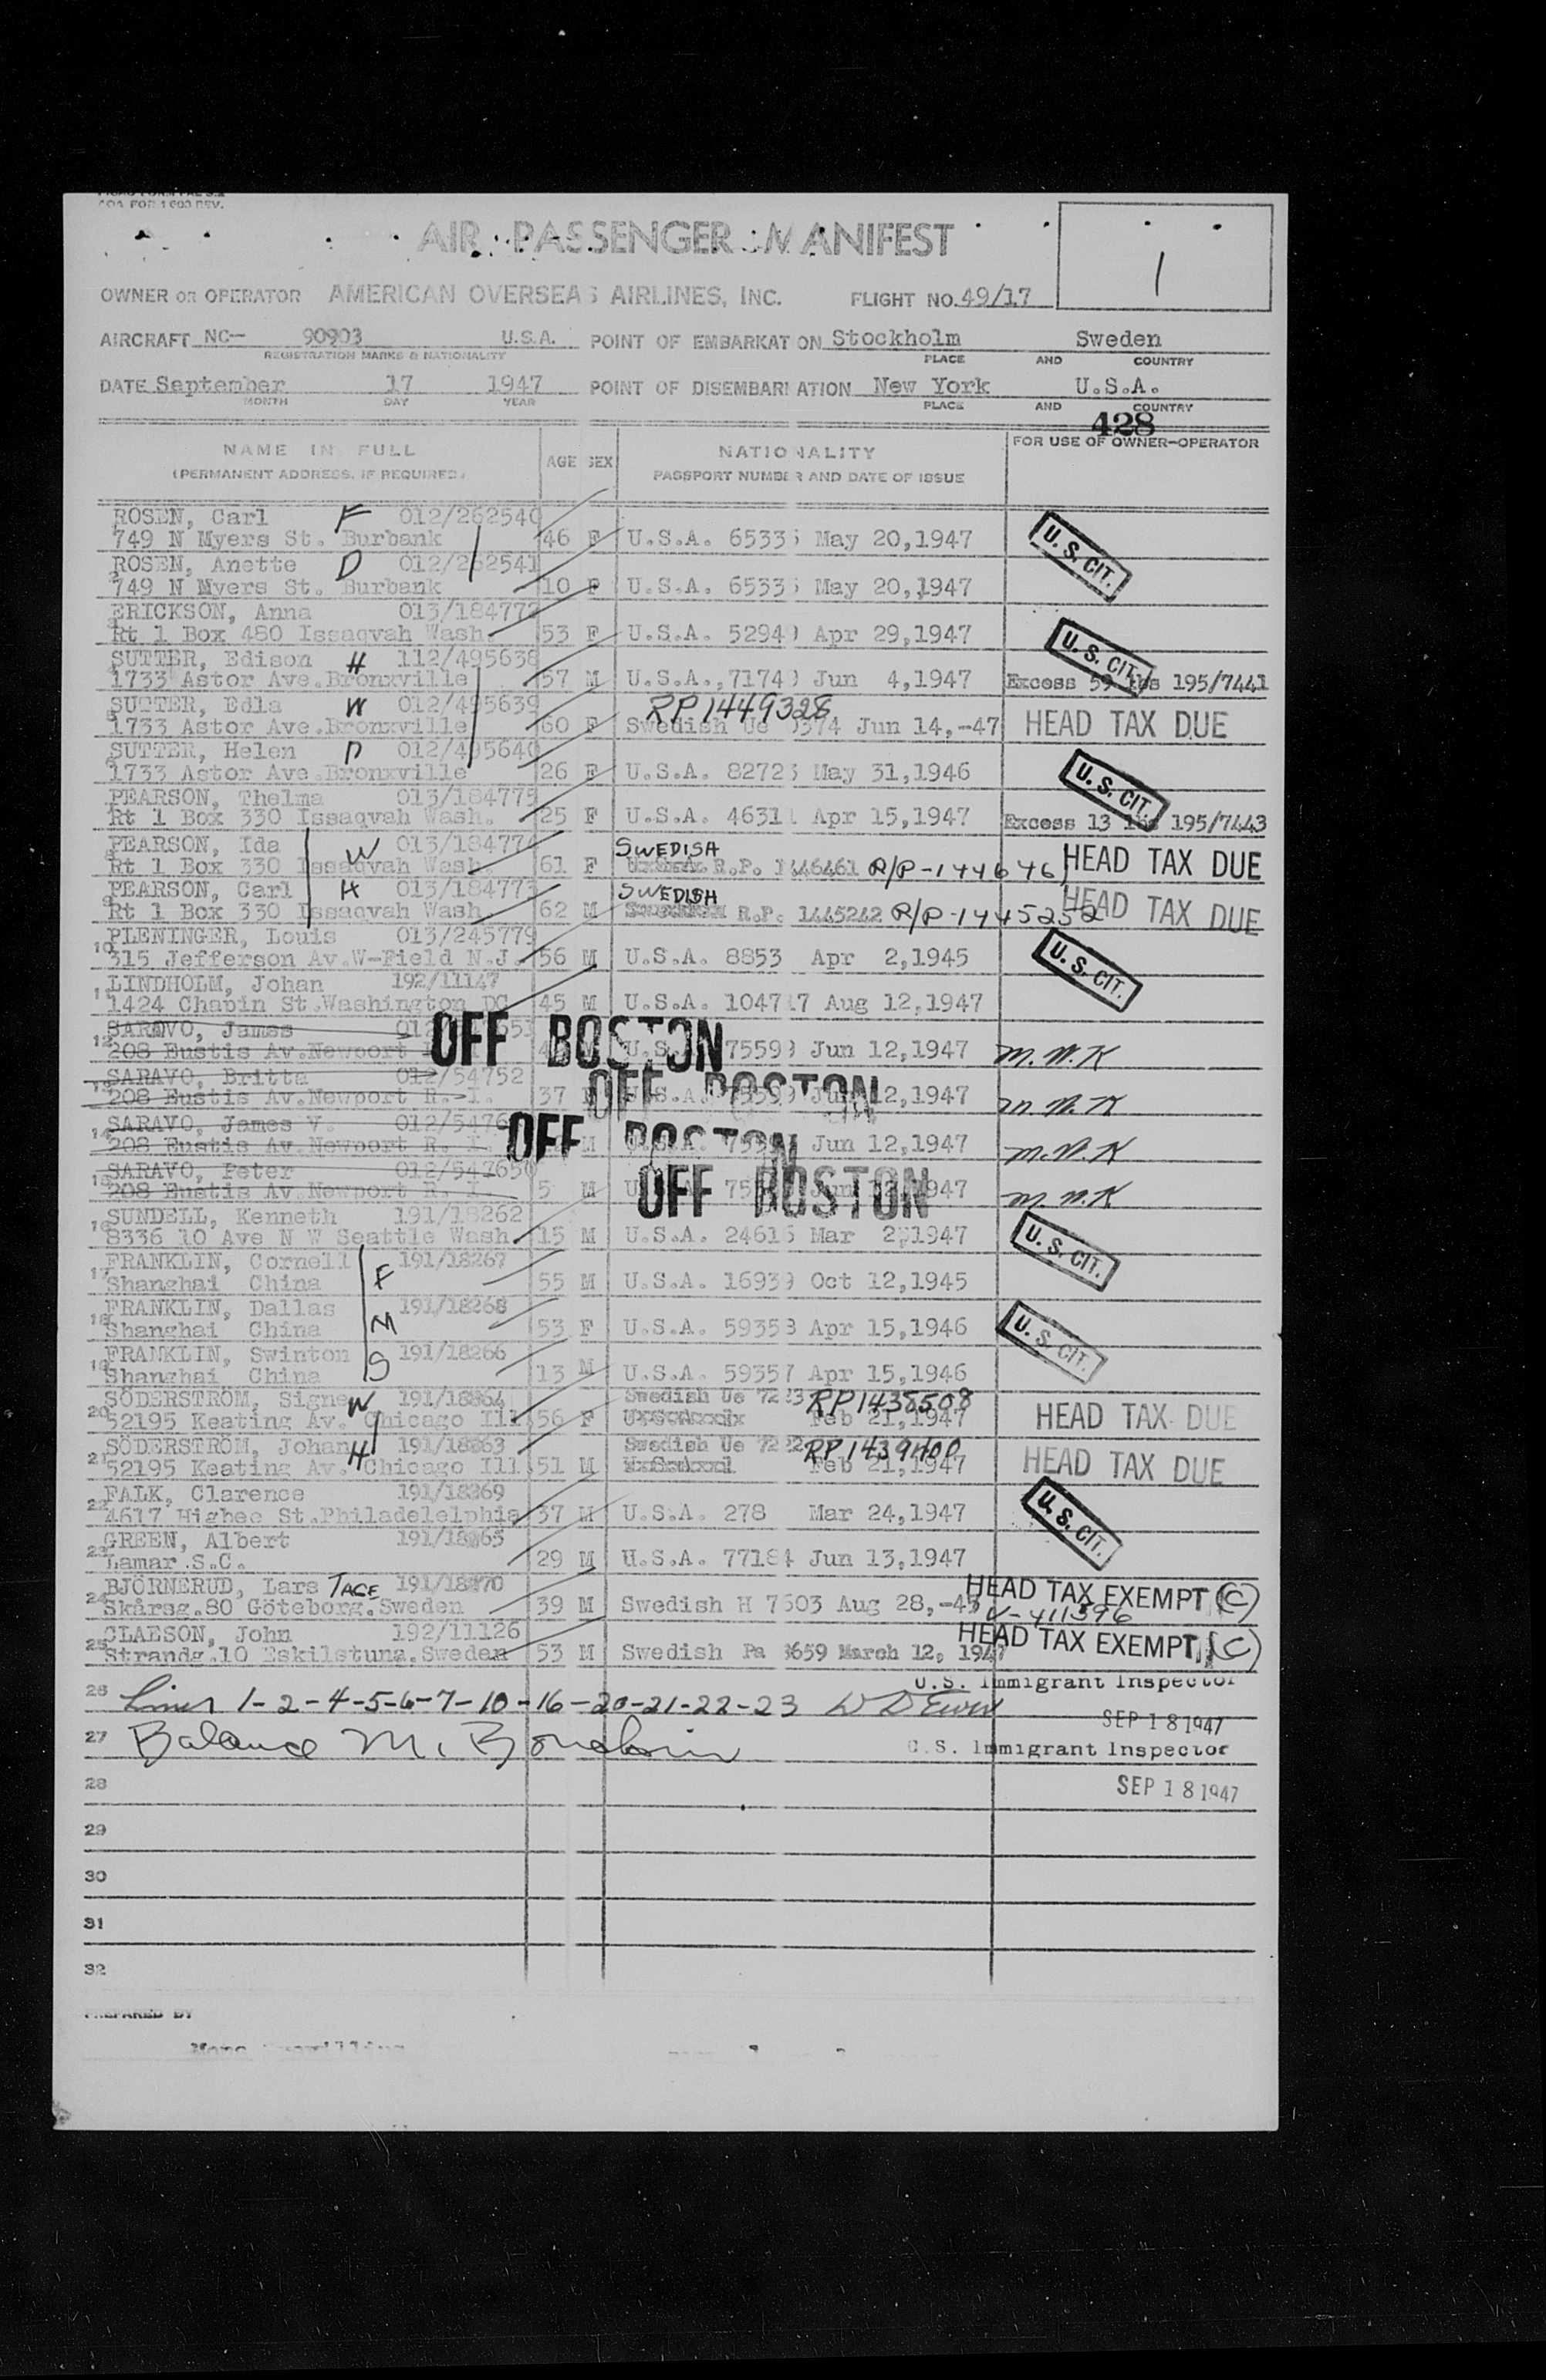 AOA FORM 603 REV.
AIR PASSENGER MANIFEST
1
OWNER OR OPERATOR AMERICAN OVERSEAS AIRLINES, INC. FLIGHT NO. 49/17
AIRCRAFT NC— 90903 U.S.A. POINT OF EMBARKATION Stockholm Sweden
REGISTRATION MARKS & NATIONALITY PLACE AND COUNTRY
DATE September 17 1947 POINT OF DISEMBARKATION New York U.S.A.
MONTH DAY YEAR PLACE AND COUNTRY
428
NAME IN FULL AGE SEX NATIONALITY FOR USE OF OWNER-OPERATOR
(PERMANENT ADDRESS, IF REQUIRED) PASSPORT NUMBER AND DATE OF ISSUE
ROSEN, Carl F 012/262540
749 N Myers St. Burbank 46 F U.S.A. 65335 May 20,1947 U.S. CIT.
ROSEN, Anette D 012/262541
749 N Myers St. Burbank 10 F U.S.A. 65335 May 20,1947
ERICKSON, Anna 013/184772
Rt 1 Box 480 Issaqvah Wash. 53 F U.S.A. 52949 Apr 29,1947 U.S. CIT.
SUTTER, Edison H 112/495638
1733 Astor Ave.Bronxville 57 M U.S.A.,71749 Jun 4,1947 Excess 59 lbs 195/7441
SUTTER, Edla W 012/495639 RP1449328
1733 Astor Ave.Bronxville 60 F Swedish Ue 0374 Jun 14,-47 HEAD TAX DUE
SUTTER, Helen D 012/495640
1733 Astor Ave.Bronxville 26 F U.S.A. 82723 May 31,1946 U.S. CIT.
PEARSON, Thelma 013/184775
Rt 1 Box 330 Issaqvah Wash. 25 F U.S.A. 46311 Apr 15,1947 Excess 13 lbs 195/7443
PEARSON, Ida W 013/184774 SWEDISH
Rt 1 Box 330 Issaqvah Wash. 61 F R.P. 1446461 R/P-1446461 HEAD TAX DUE
PEARSON, Carl H 013/184773 SWEDISH
Rt 1 Box 330 Issaqvah Wash. 62 M R.P. 1445242 R/P-1445252 HEAD TAX DUE
PLENINGER, Louis 013/245779
10 315 Jefferson Av.W-Field N.J. 56 M U.S.A. 8853 Apr 2,1945 U.S. CIT.
LINDHOLM, Johan 192/11147
1424 Chapin St.Washington DC 45 M U.S.A. 104717 Aug 12,1947
SARAVO, James OFF BOSTON
12 208 Eustis Av.Newport U.S.A. 75599 Jun 12,1947 M.N.K
SARAVO, Britta 012/54752 OFF BOSTON
13 208 Eustis Av.Newport R. I. 37 U.S.A. 75599 Jun 12,1947 M.N.K
SARAVO, James V. OFF BOSTON
14 208 Eustis Av.Newport R. I. M Jun 12,1947 M.N.K
SARAVO, Peter 012/547650 OFF BOSTON
15 208 Eustis Av.Newport R. I. 5 M Jun 12,1947 M.N.K
SUNDELL, Kenneth 191/18262
16 8336 10 Ave N W Seattle Wash. 15 M U.S.A. 24615 Mar 2,1947 U.S. CIT.
FRANKLIN, Cornell F 191/18267
17 Shanghai China 55 M U.S.A. 16939 Oct 12,1945
FRANKLIN, Dallas M 191/18268
18 Shanghai China 53 F U.S.A. 59358 Apr 15,1946 U.S. CIT.
FRANKLIN, Swinton S 191/18266
19 Shanghai China 13 M U.S.A. 59357 Apr 15,1946
SÖDERSTRÖM, Signe W 191/18264 Swedish Ue RP1438508
20 52195 Keating Av. Chicago Ill. 56 F Feb 21,1947 HEAD TAX DUE
SÖDERSTRÖM, Johan H 191/18263 Swedish Ue RP1439400
21 52195 Keating Av. Chicago Ill. 51 M Feb 21,1947 HEAD TAX DUE
FALK, Clarence 191/18269
22 4617 Higbee St.Philadelelphia 37 M U.S.A. 278 Mar 24,1947 U.S. CIT.
GREEN, Albert 191/18265
23 Lamar S.C. 29 M U.S.A. 77184 Jun 13,1947
BJÖRNERUD, Lars TAGE 191/18270 HEAD TAX EXEMPT (C)
24 Skårsg.80 Göteborg.Sweden 39 M Swedish H 7603 Aug 28,-45 V-411396
CLAESON, John 192/11126 HEAD TAX EXEMPT (C)
25 Strandg.10 Eskilstuna.Sweden 53 M Swedish Pa 3659 March 12, 1947
U.S. Immigrant Inspector
26 Lines 1-2-4-5-6-7-10-16-20-21-22-23 W D Ewen
SEP 18 1947
27 Balance M.
U.S. Immigrant Inspector
28 SEP 18 1947
29
30
31
32
PREPARED BY